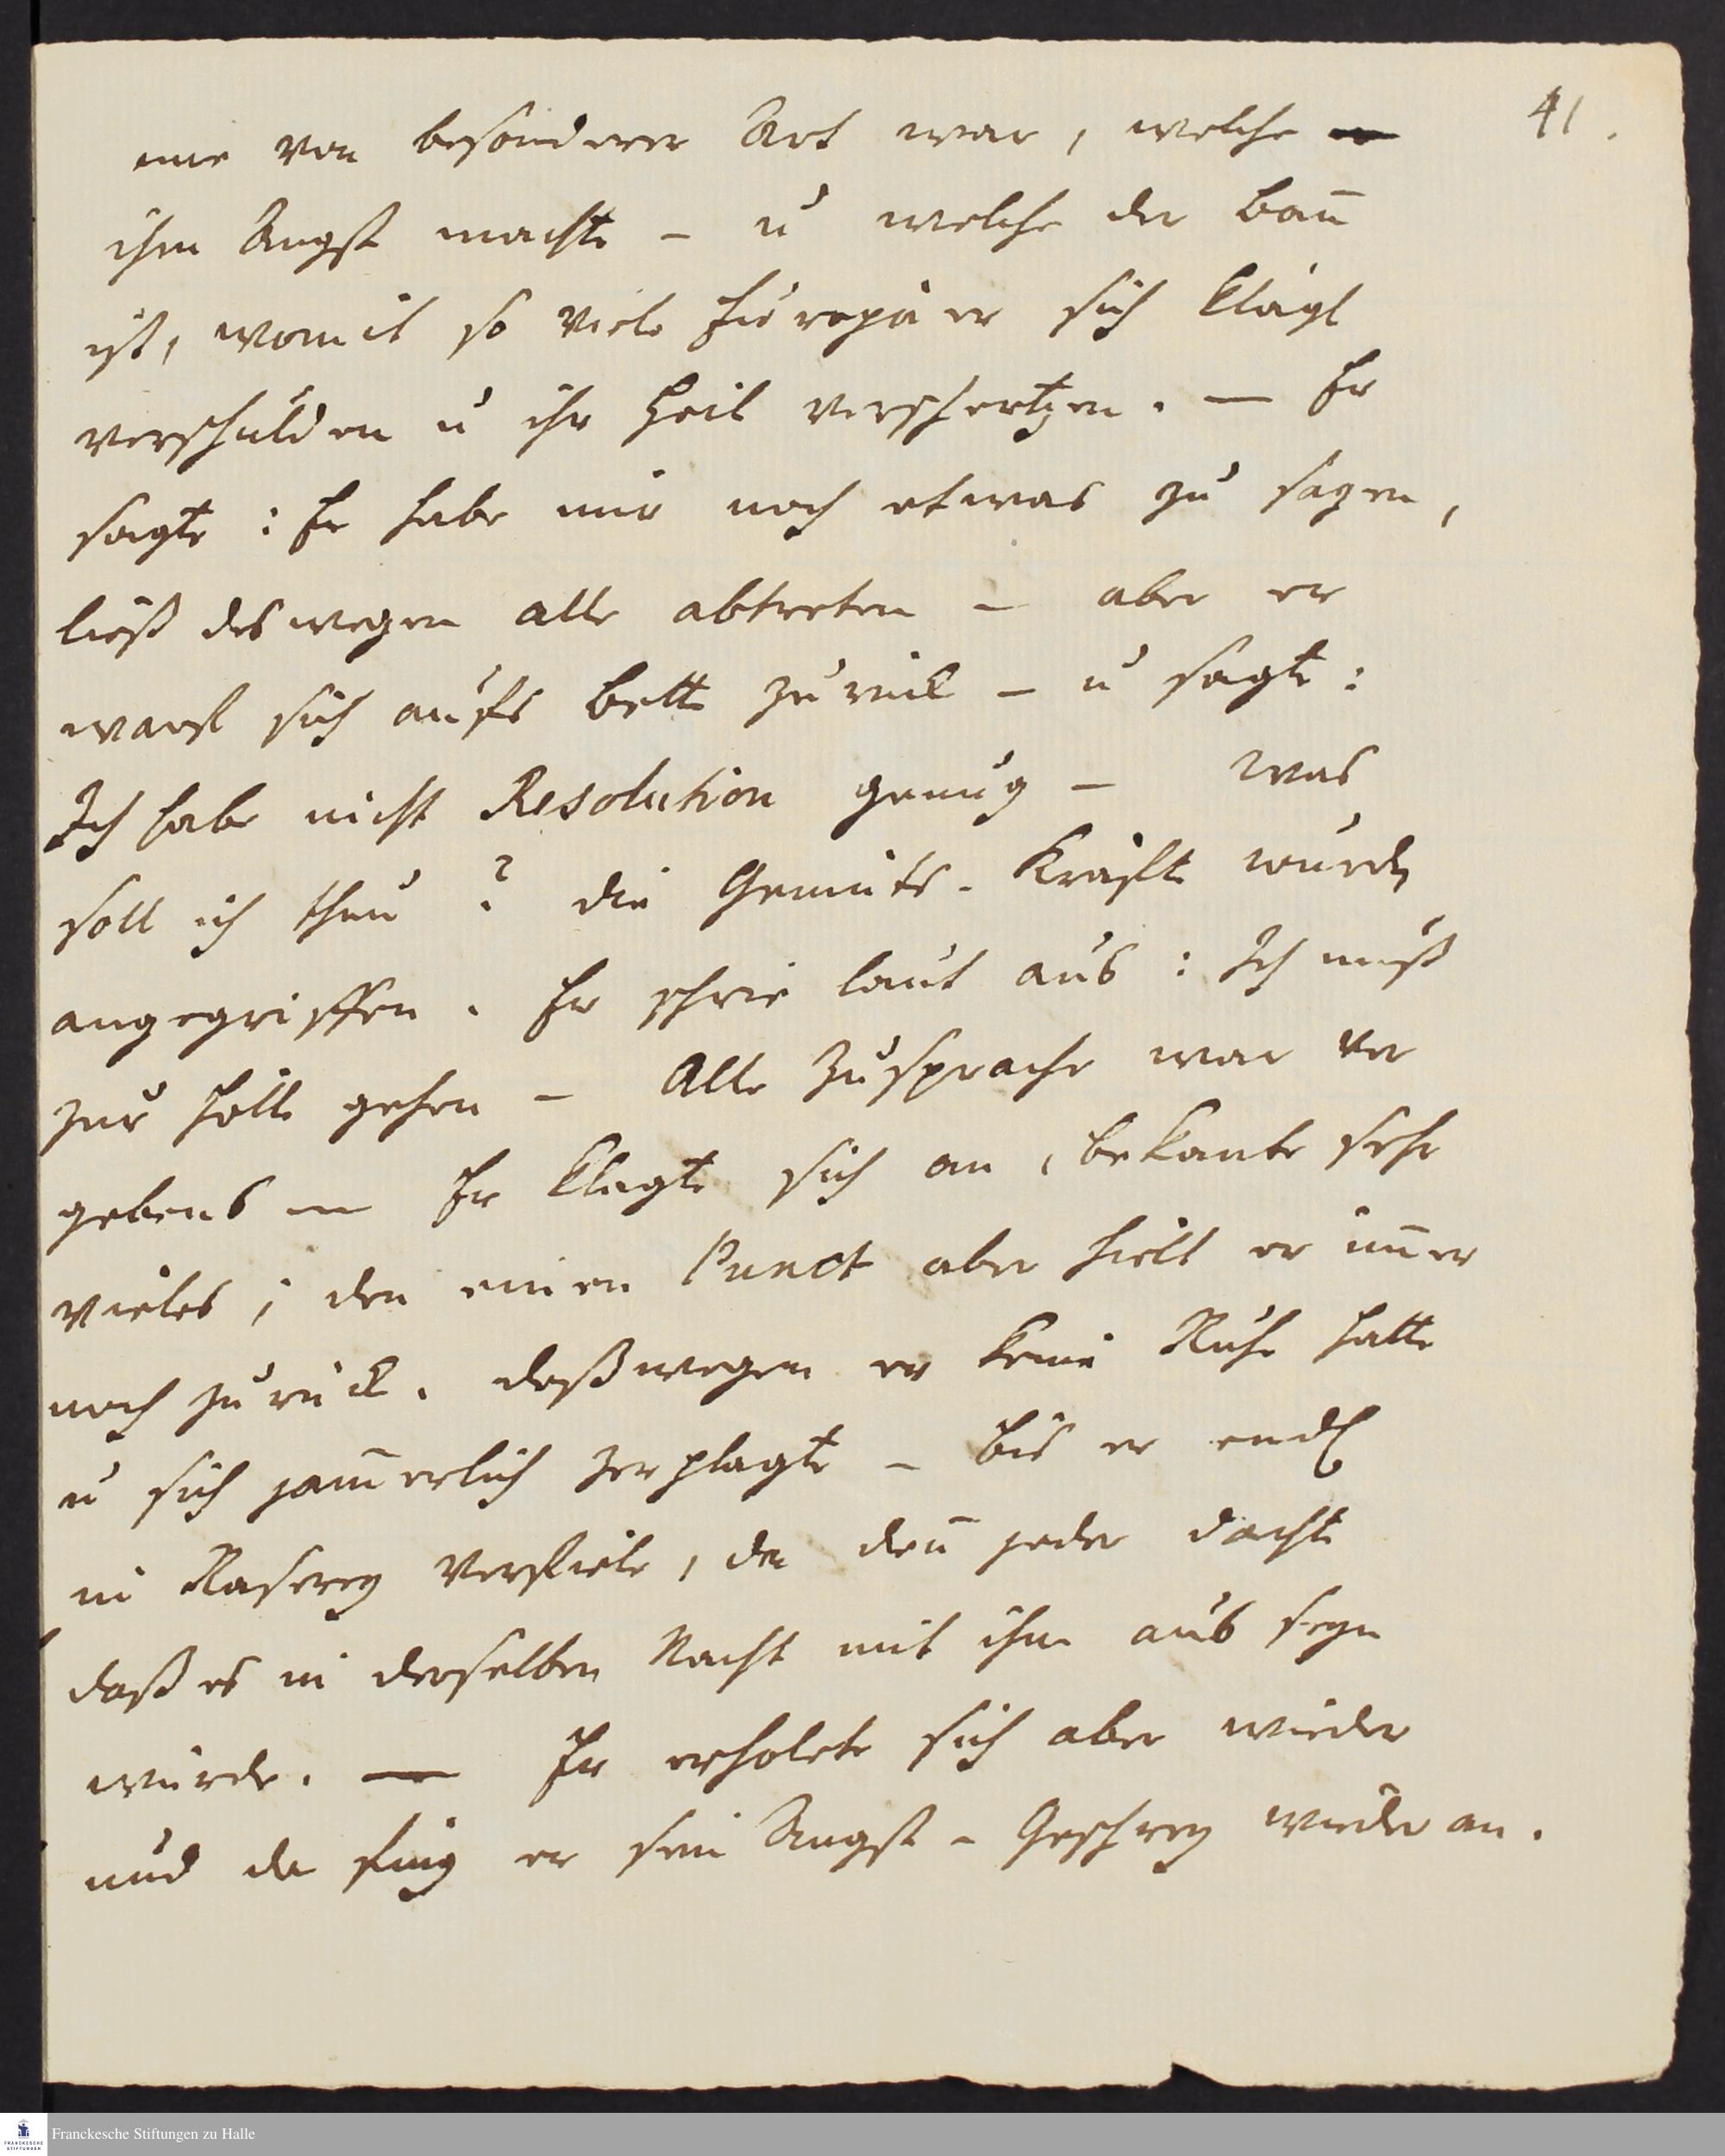 41.
eine von besonderer Art war, welche
ihm Angst machte - u welche der Baum̅
ist, womit so viele Europäer sich klägl
verschulden u ihr Heil verschertzen. — Er
sagte: Er habe mir noch etwas zu sagen,
ließ deswegen alle abtreten - aber er
warf sich aufs Bette zurück - u sagte:
Ich habe nicht Resolution genug - Was
soll ich thun? die Gemüts-Kräfte wurden
angegriffen. Er schrie laut aus: Ich muß
zur Hölle gehen - Alle Zusprache war ver
gebens — Er klagte sich an, bekante sehr
vieles; den einen Punct aber hielt er im̅er
noch zurück. deßwegen er keine Ruhe hatte
u sich jam̅erlich zerplagte - bis er endl
in Raserey verfiele, da den̅ jeder dachte
daß es in derselben Nacht mit ihm aus seyn
würde. — Er erholete sich aber wieder
und da fing er sein Angst-Geschrey wieder an.
Franckesche Stiftungen zu Halle
FRANCKESCHE STIFTUNGEN